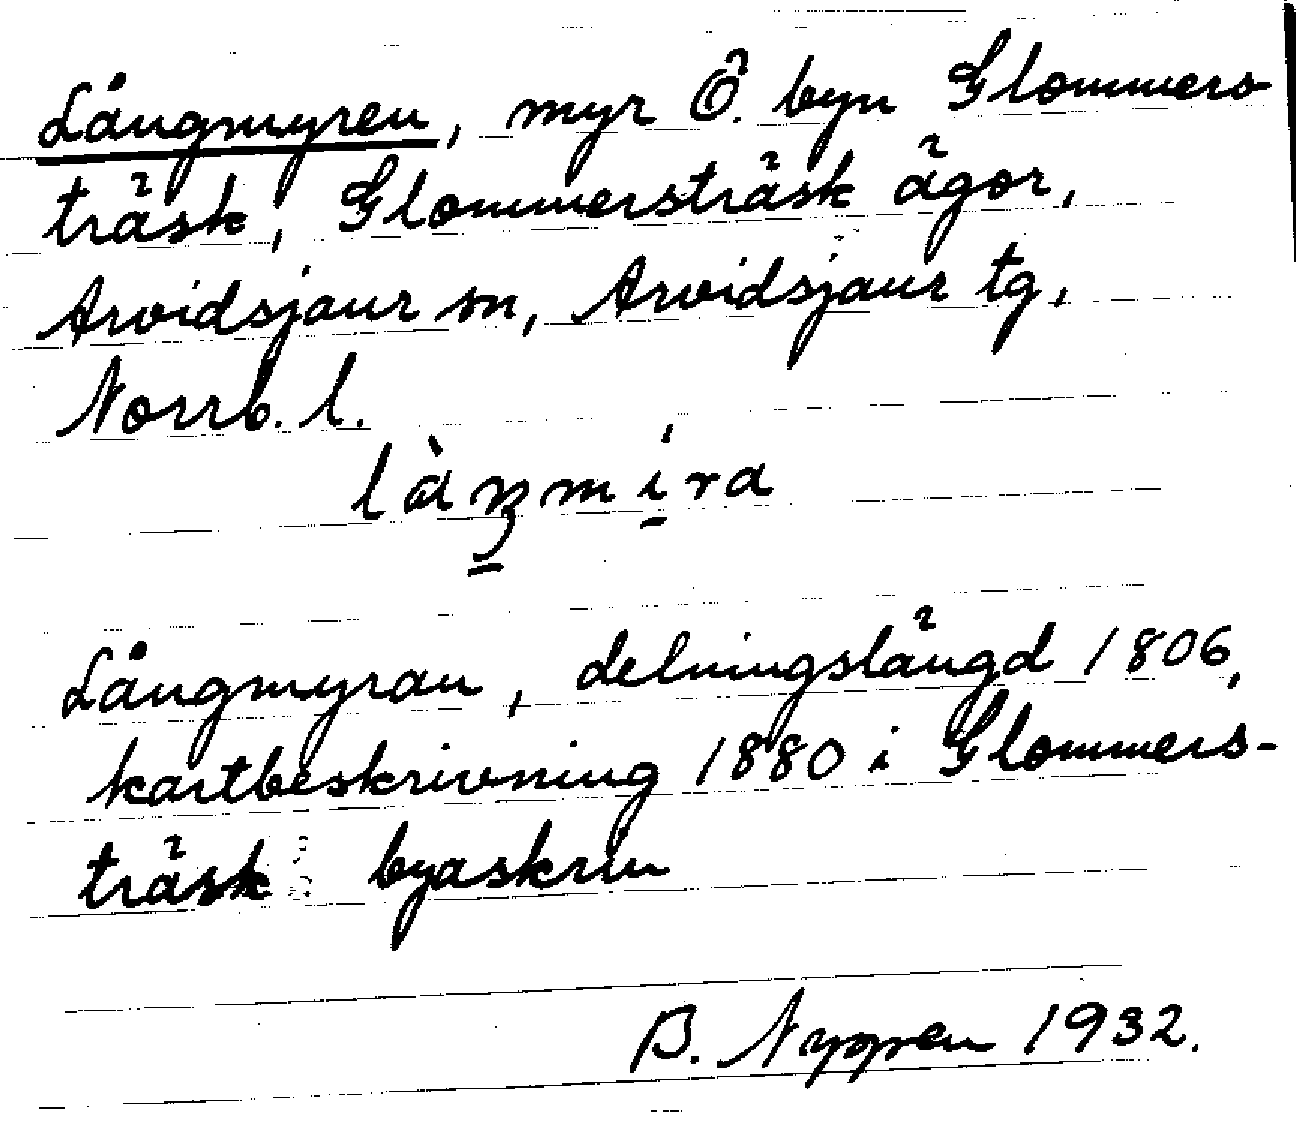 Långmyren, myr Ö. byn Glommers-
träsk, Glommersträsk ägor,
Arvidsjaur sn, Arvidsjaur tg,
Norrb. l.
Långmyran, delningslängd 1806,
kartbeskrivning 1880 i Glommers-
träsk byaskrin
B. 1932.